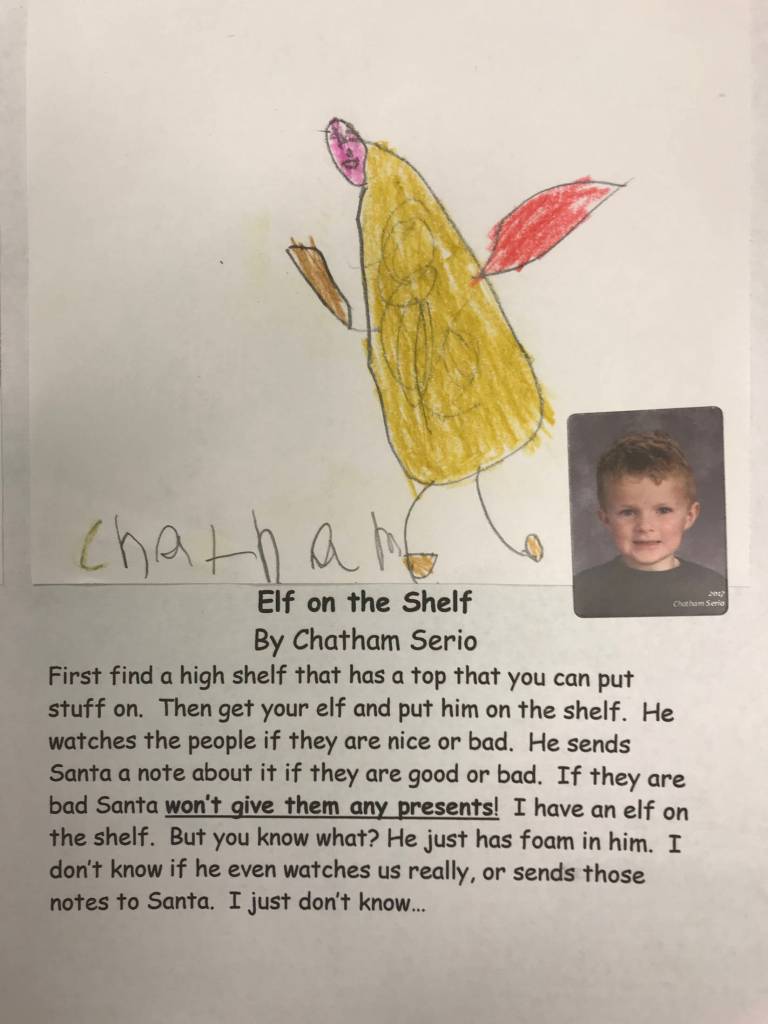 Chatham
2017
Chatham Serio
Elf on the Shelf
By Chatham Serio
First find a high shelf that has a top that you can put
stuff on.  Then get your elf and put him on the shelf.  He
watches the people if they are nice or bad.  He sends
Santa a note about it if they are good or bad.  If they are
bad Santa won't give them any presents!  I have an elf on
the shelf.  But you know what? He just has foam in him.  I
don't know if he even watches us really, or sends those
notes to Santa.  I just don't know...